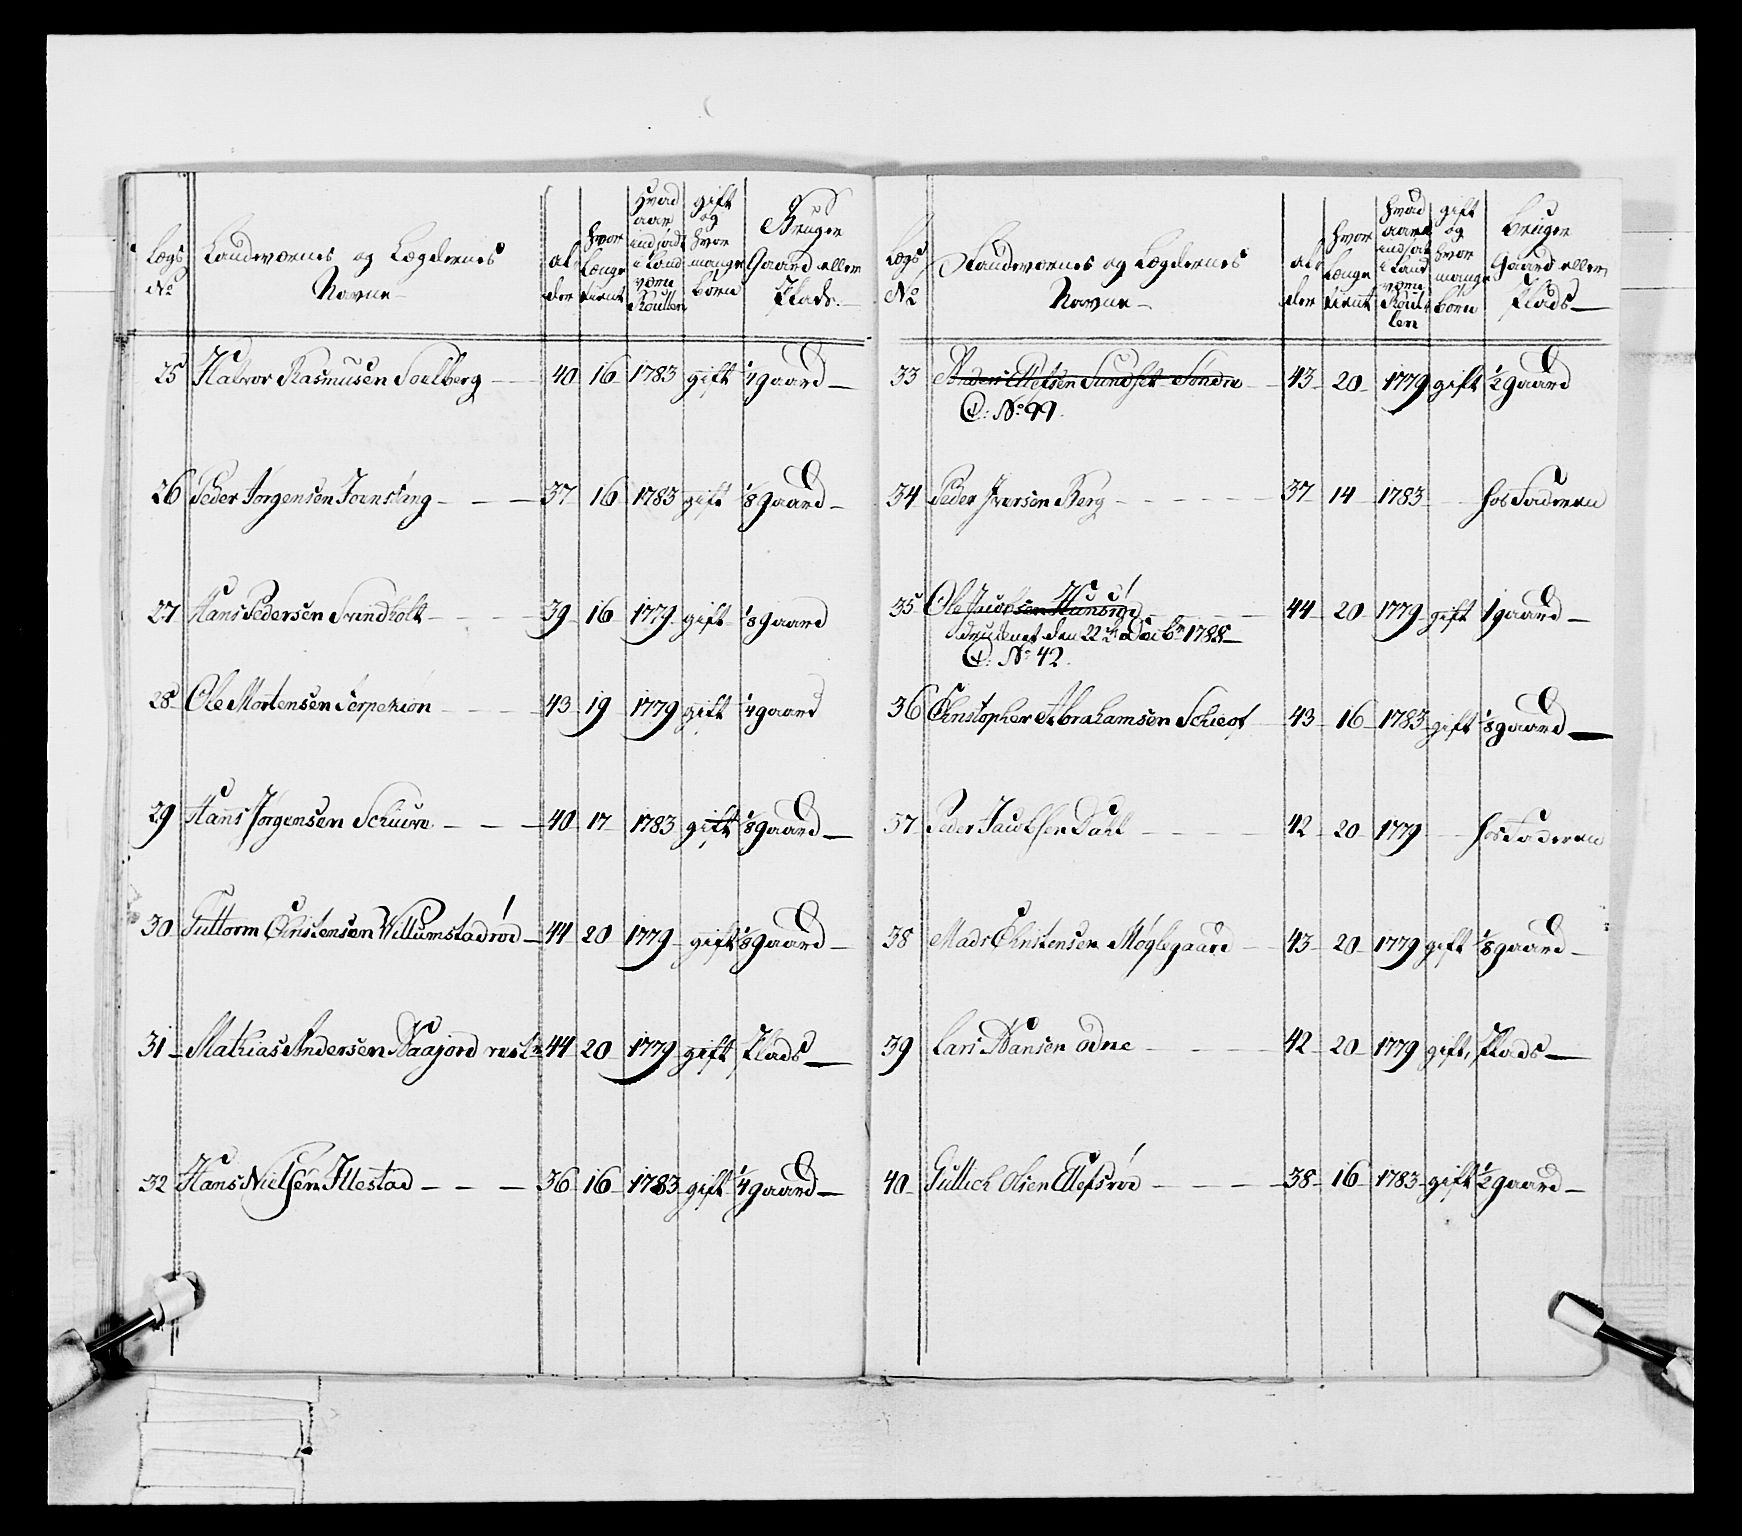 Lægs No | Landværnes og Lægdernes Navne | alder | hvor længe tient | Hvad aar indsadt i Land værn Roullen | gift og hvor mange børn | Bruger Gaard eller Plads
25 Halvor Rasmusen Soelberg — 40 16 1783 gift 1/4 gaard
26 Peder Jørgensen — 37 16 1783 gift 1/8 gaard
27 Hans Pedersen — 39 16 1779 gift 1/8 gaard
28 Ole Mortensen — 43 19 1779 gift 1/4 gaard
29 Hans Jørgensen — 40 17 1783 gift 1/8 gaard
30 Guttorm Christensen Willumstadrød — 44 20 1779 gift 1/8 gaard
31 Mathias Andersen — 44 20 1779 gift Plads
32 Hans Nielsen Illestad — 36 16 1783 gift 1/4 gaard
Lægs No | Landværnes og Lægdernes Navne | alder | hvor længe tient | hvad aar indsat i Land værn Roullen | gift og hvor mange børn | bruger Gaard eller Plads
33 Anders Ellefsen Sundset Søndre — 43 20 1779 gift 1/2 gaard
No 99
34 Peder Iversen Berg — 37 14 1783 — hos Faderen
35 Ole Jacobsen — 44 20 1779 gift 1 gaard
den 22 Decbr 1788
No 42
36 Christopher Abrahamsen — 43 16 1783 gift 1/8 gaard
37 Peder Jacobsen Dahl — 42 20 1779 — hos Faderen
38 Mads Christensen Møglegaard — 43 20 1779 gift 1/8 gaard
39 Lars Hansen Odne — 42 20 1779 gift, Plads
40 Gullich Olsen Ellefsrød — 38 16 1783 gift 1/2 gaard